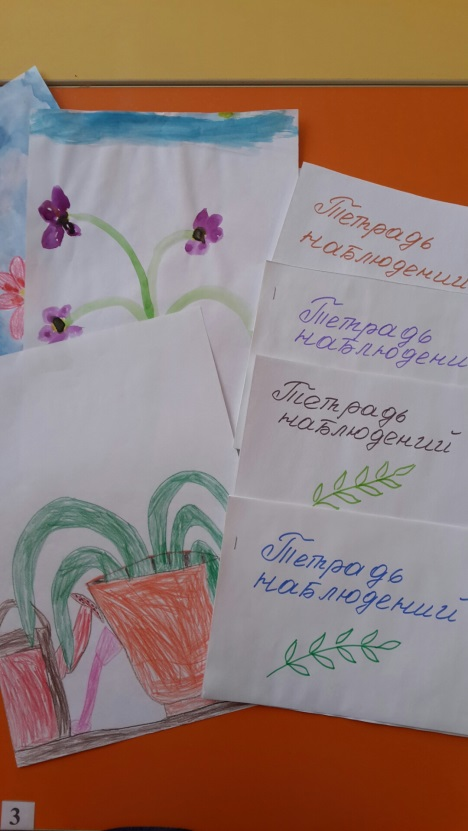 Тетрадь
наблюдений
Тетрадь
наблюдени
Тетрадь
наблюдений
Тетрадь
наблюдений
3